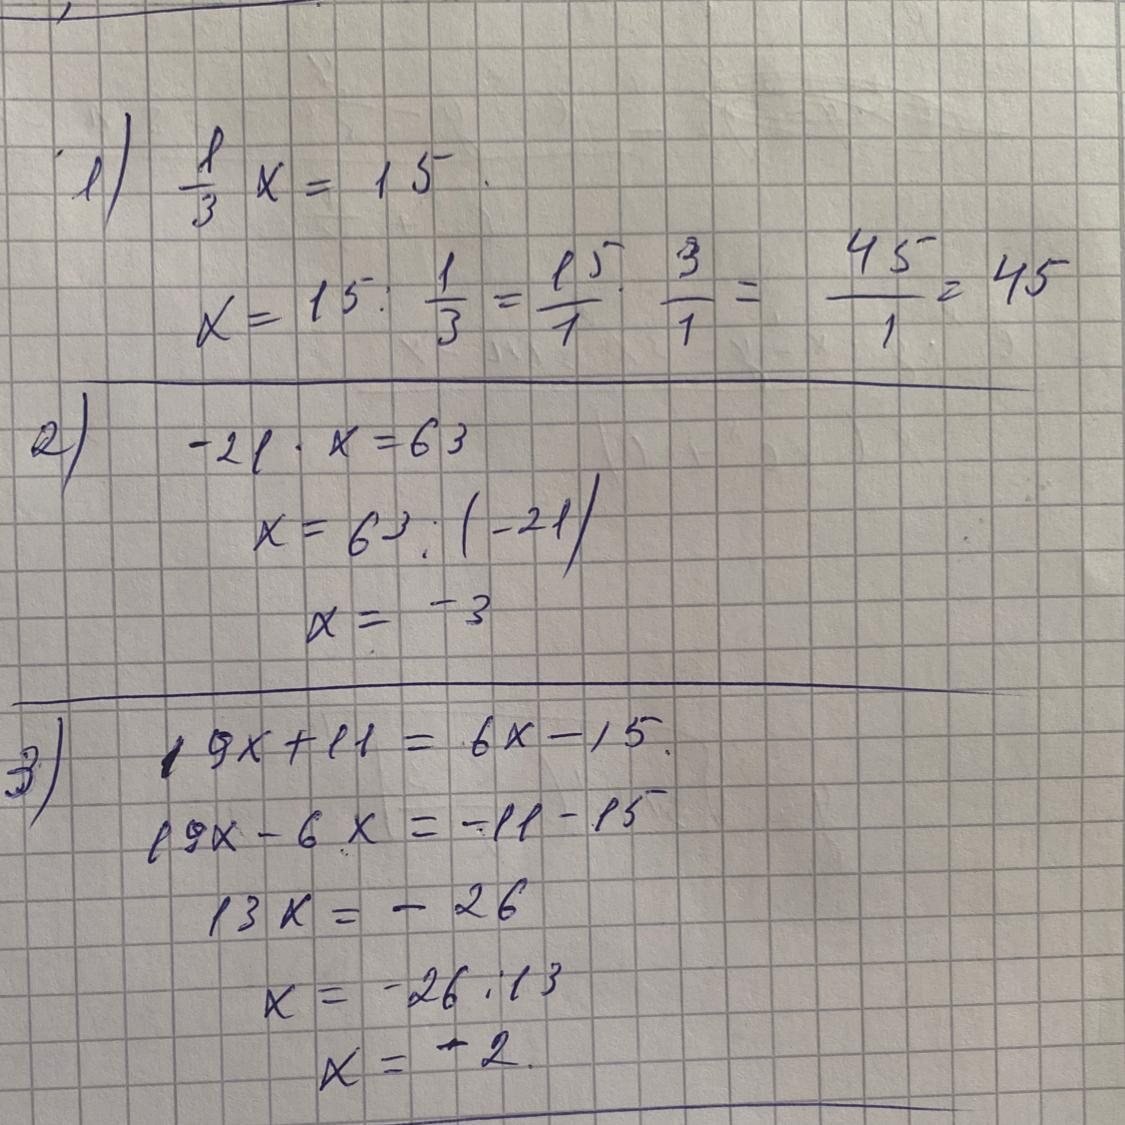 1) 1/3 x = 15.
x = 15 : 1/3 = 15/1 · 3/1 = 45/1 = 45
2) -21 · x = 63
x = 63 : (-21)
x = -3
3) 19x + 11 = 6x - 15.
19x - 6x = -11 - 15
13x = - 26
x = -26 : 13
x = -2.